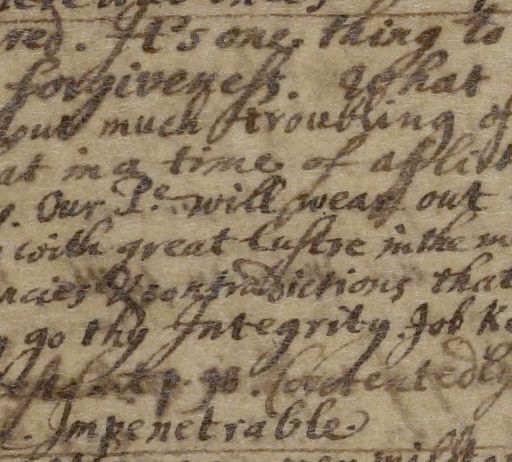 red. It's one thing to
forgiveness. What
out much troubling of
at in a time of afli
Our Ps. will wear out
with great lustre in the
acies & contradictions that
go thy Integrity. Job
p. 90. Contentedly
Impenetrable.